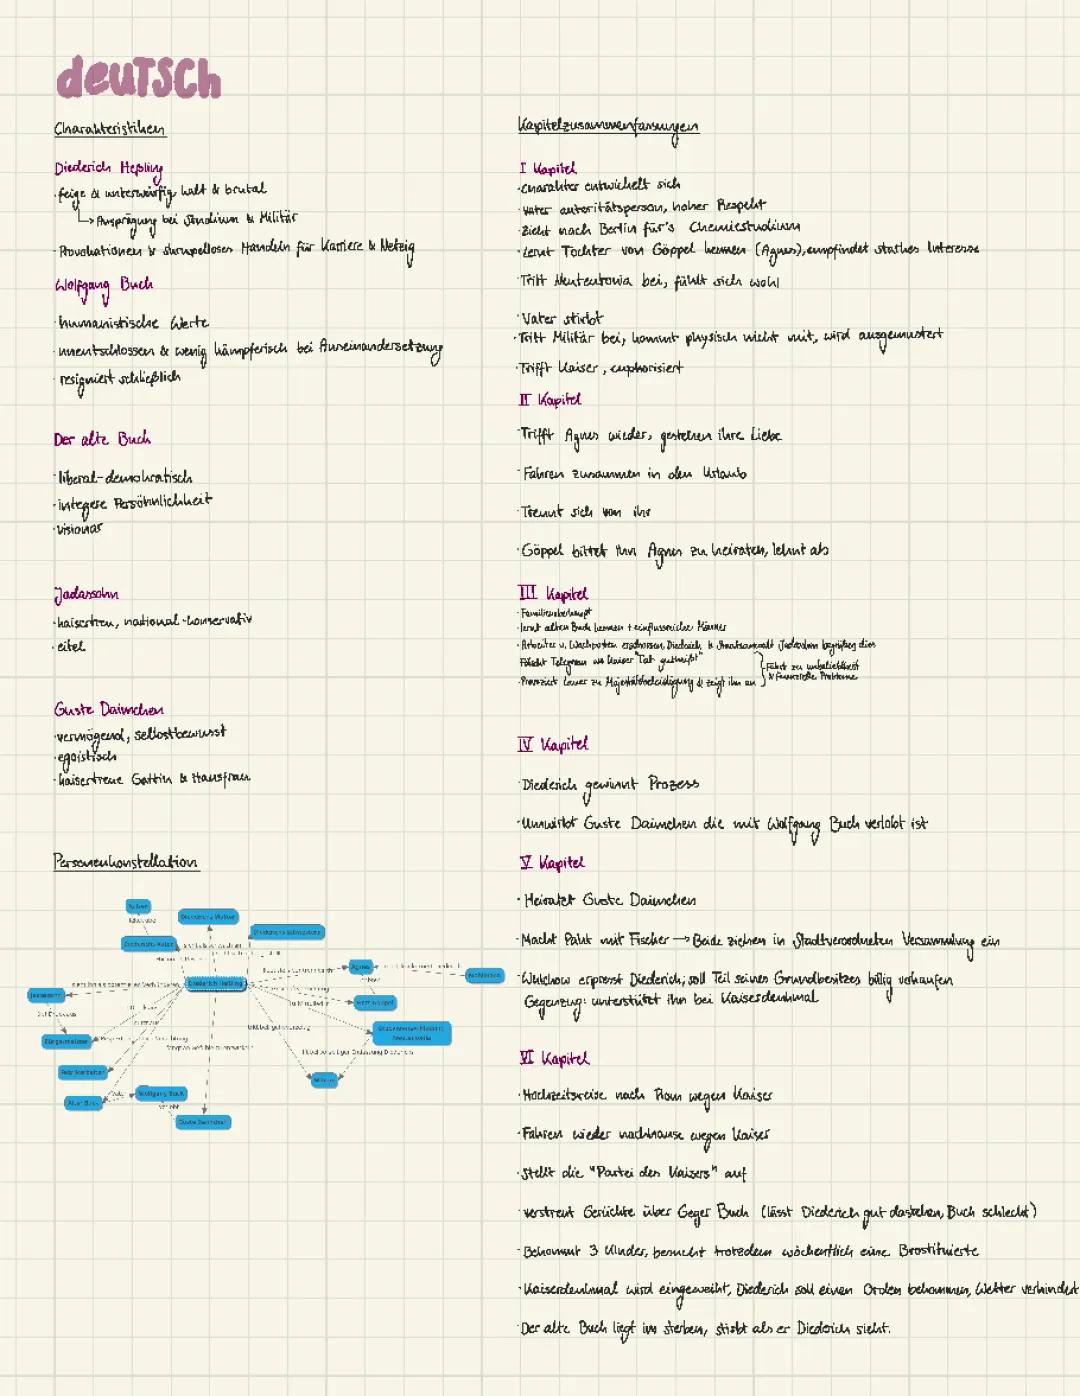 deutsch
Charakteristiken
Diederich Heßling
· feige & unterwürfig, kalt & brutal
↳ Ausprägung bei Studium & Militär
· Provokationen & skrupelloses Handeln für Karriere & Netzig
Wolfgang Buch
· humanistische Werte
· unentschlossen & wenig kämpferisch bei Auseinandersetzung
· resigniert schließlich
Der alte Buch
· liberal-demokratisch
· integere Persöhnlichkeit
· visionär
Jadassohn
· kaisertreu, national-konservativ
· eitel
Guste Daimchen
· vermögend, selbstbewusst
· egoistisch
· kaisertreue Gattin & Hausfrau
Personenkonstellation
Diederichs Mutter
Diederichs Schwestern
Diederichs Vater
Agnes
Diederich Heßling
Mahlmann
Jadassohn
Herr Göppel
Bürgermeister
Neuteutonia
Fabrikarbeiter
Militär
Alter Buch
Wolfgang Buch
Vater
verlobt
Guste Daimchen
Kapitelzusammenfassungen
I Kapitel
· Charakter entwickelt sich
· Vater autoritätsperson, hoher Respekt
· Zieht nach Berlin für's Chemiestudium
· Lernt Tochter von Göppel kennen (Agnes), empfindet starkes Interesse
· Tritt Neuteutonia bei, fühlt sich wohl
· Vater stirbt
· Tritt Militär bei, kommt physisch nicht mit, wird ausgemustert
· Trifft Kaiser, euphorisiert
II Kapitel
· Trifft Agnes wieder, gestehen ihre Liebe
· Fahren zusammen in den Urlaub
· Trennt sich von ihr
· Göppel bittet ihn Agnes zu heiraten, lehnt ab
III Kapitel
· Familienoberhaupt
· lernt alten Buch kennen + einflussreiche Männer
· Arbeiter v. Wachposten erschossen, Diederich & Staatsanwalt Jadassohn begrüßen dies
Fälscht Telegram wo Kaiser "Tat gutheißt"
· Provoziert Lauer zu Majestätsbeleidigung & zeigt ihn an
führt zu unbeliebtheit
& finanzielle Probleme
IV Kapitel
· Diederich gewinnt Prozess
· Umwirbt Guste Daimchen die mit Wolfgang Buch verlobt ist
V Kapitel
· Heiratet Guste Daimchen
· Macht Pakt mit Fischer → Beide ziehen in Stadtverordneten Versammlung ein
· Wulckow erpresst Diederich, soll Teil seines Grundbesitzes billig verkaufen
Gegenzug: unterstützt ihn bei Kaiserdenkmal
VI Kapitel
· Hochzeitsreise nach Rom wegen Kaiser
· Fahren wieder nachhause wegen Kaiser
· Stellt die "Partei des Kaisers" auf
· verstreut Gerüchte über Geger Buch (lässt Diederich gut dastehen, Buch schlecht)
· Bekommt 3 Kinder, besucht trotzdem wöchentlich eine Brostituierte
· Kaiserdenkmal wird eingeweiht, Diederich soll einen Orden bekommen, Wetter verhindert
· Der alte Buch liegt im sterben, stirbt als er Diederich sieht.